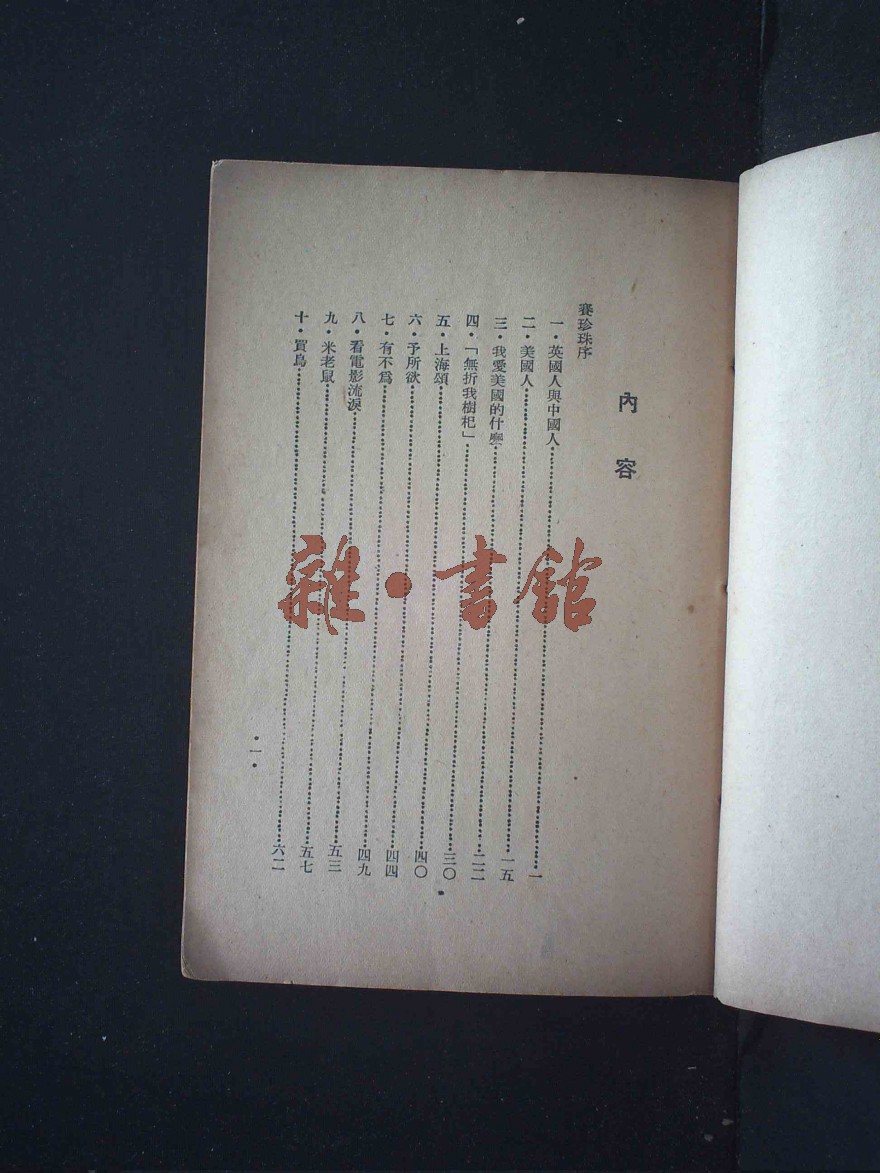 內容
賽珍珠序
一・英國人與中國人……………一
二・美國人……………一五
三・我愛美國的什麼……………二二
四・「無折我樹杞」……………三〇
五・上海頌……………四〇
六・予所欲……………四四
七・有不為……………四九
八・看電影流淚……………五三
九・米老鼠……………五七
十・買鳥……………六二
・一・
雜・書館